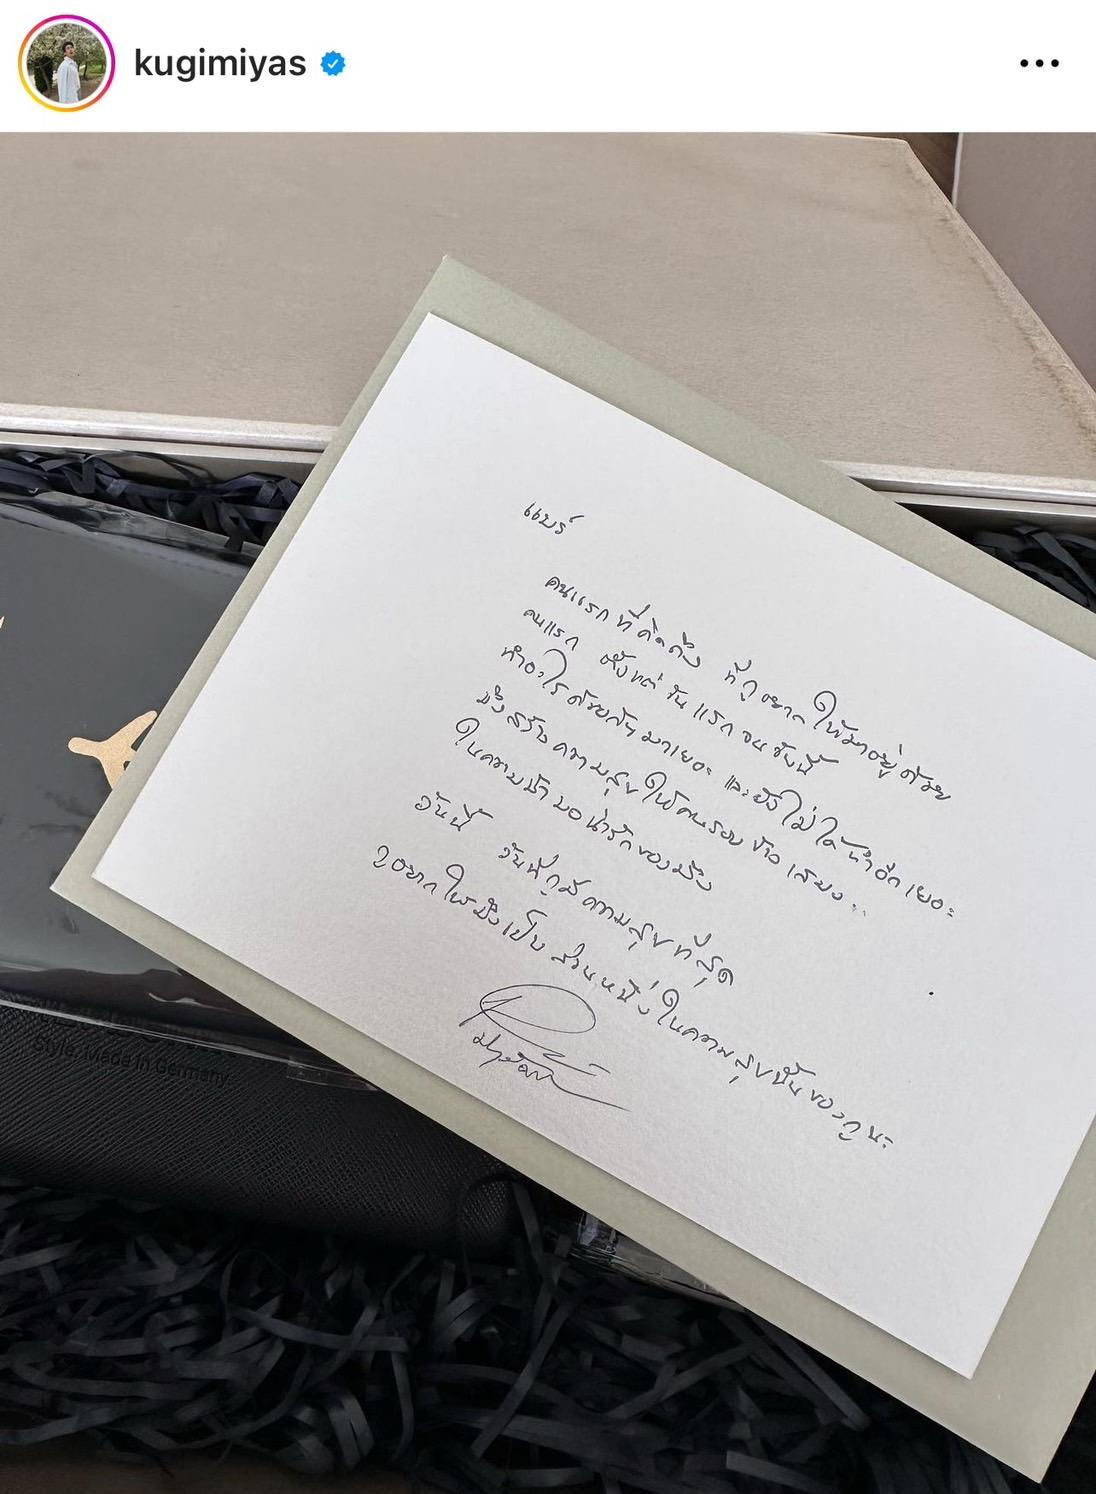 kugimiyas
แบร์
คนแรกที่คิดถึง ที่กูอยากให้มาอยู่ด้วย
คนแรก ตั้งแต่วันแรกจนวันนี้
ทำอะไรด้วยกันมาเยอะ และยังไม่ได้ทำอีกเยอะ
มึงสร้างความสุขให้คนรอบข้างเสมอ..
ในความน่ารักของมึง
วันนี้ วันที่กูมีความสุขที่สุด
กูอยากให้มึงเป็นส่วนหนึ่งในความสุขนั้นของกูนะ
Style. Made in Germany